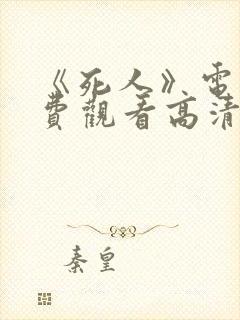 《死人》電
費觀看高清
秦皇